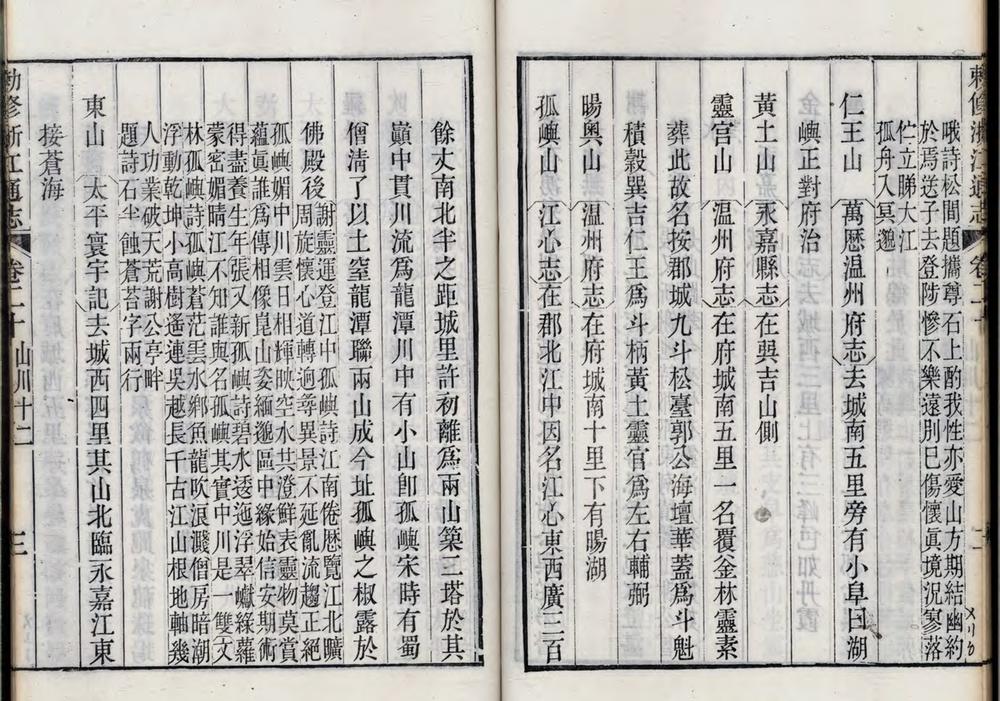 敕修浙江通志 卷二十
哦詩松間題攜尊石上酌我性亦愛山方期結幽約
於焉送子去登陟慘不樂遠別巳傷懷眞境況寥落
伫立睇大江
孤舟入冥邈
仁王山 萬厯温州府志去城南五里旁有小阜曰湖
金嶼正對府治
黃土山 永嘉縣志在巽吉山側
靈官山 温州府志在府城南五里一名覆釜林靈素
葬此故名按郡城九斗松臺郭公海壇華蓋爲斗魁
積穀巽吉仁王爲斗柄黃土靈官爲左右輔弼
暘奧山 温州府志在府城南十里下有暘湖
孤嶼山 江心志在郡北江中因名江心東西廣三百
餘丈南北半之距城里許初離爲兩山築二塔於其
巓中貫川流爲龍潭川中有小山卽孤嶼宋時有蜀
僧清了以土窒龍潭聯兩山成今址孤嶼之椒露於
佛殿後 謝靈運登江中孤嶼詩江南倦厯覽江北曠
周旋懷心道轉迥尋異景不延亂流趨正絕
孤嶼媚中川雲日相輝映空水共澄鮮表靈物莫賞
蘊眞誰爲傳相像崑山姿緬邈區中緣始信安期術
得盡養生年張又新孤嶼詩碧水逶迤浮翠巘綠蘿
蒙密媚晴江不知誰與名孤嶼其實中川是一雙文
林孤嶼詩孤嶼蒼茫雲水鄕魚龍吹浪濺僧房暗潮
浮動乾坤小高樹遙連吳越長千古江山根地軸幾
人功業破天荒謝公亭畔
題詩石半蝕蒼苔字兩行
東山 太平寰宇記去城西四里其山北臨永嘉江東
接蒼海
勅修浙江通志 卷二十 山川十二 三